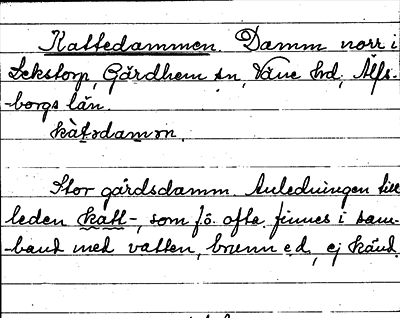 Kattedammen. Damm norr i
Lekstorp, Gärdhem sn, Väne hd, Älfs-
borgs län.
kàtədamən.
Stor gårdsdamm. Anledningen till
leden katt-, som f.ö. ofta finnes i sam-
band med vatten, brunn e.d., ej känd.